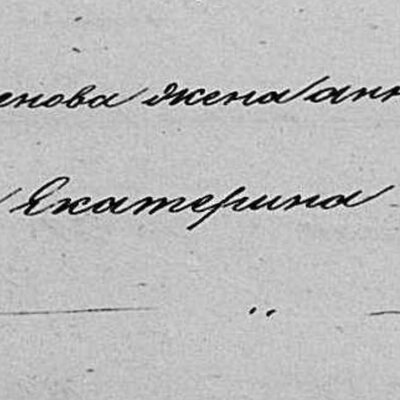 енова жена анн
Екатерина
— " —